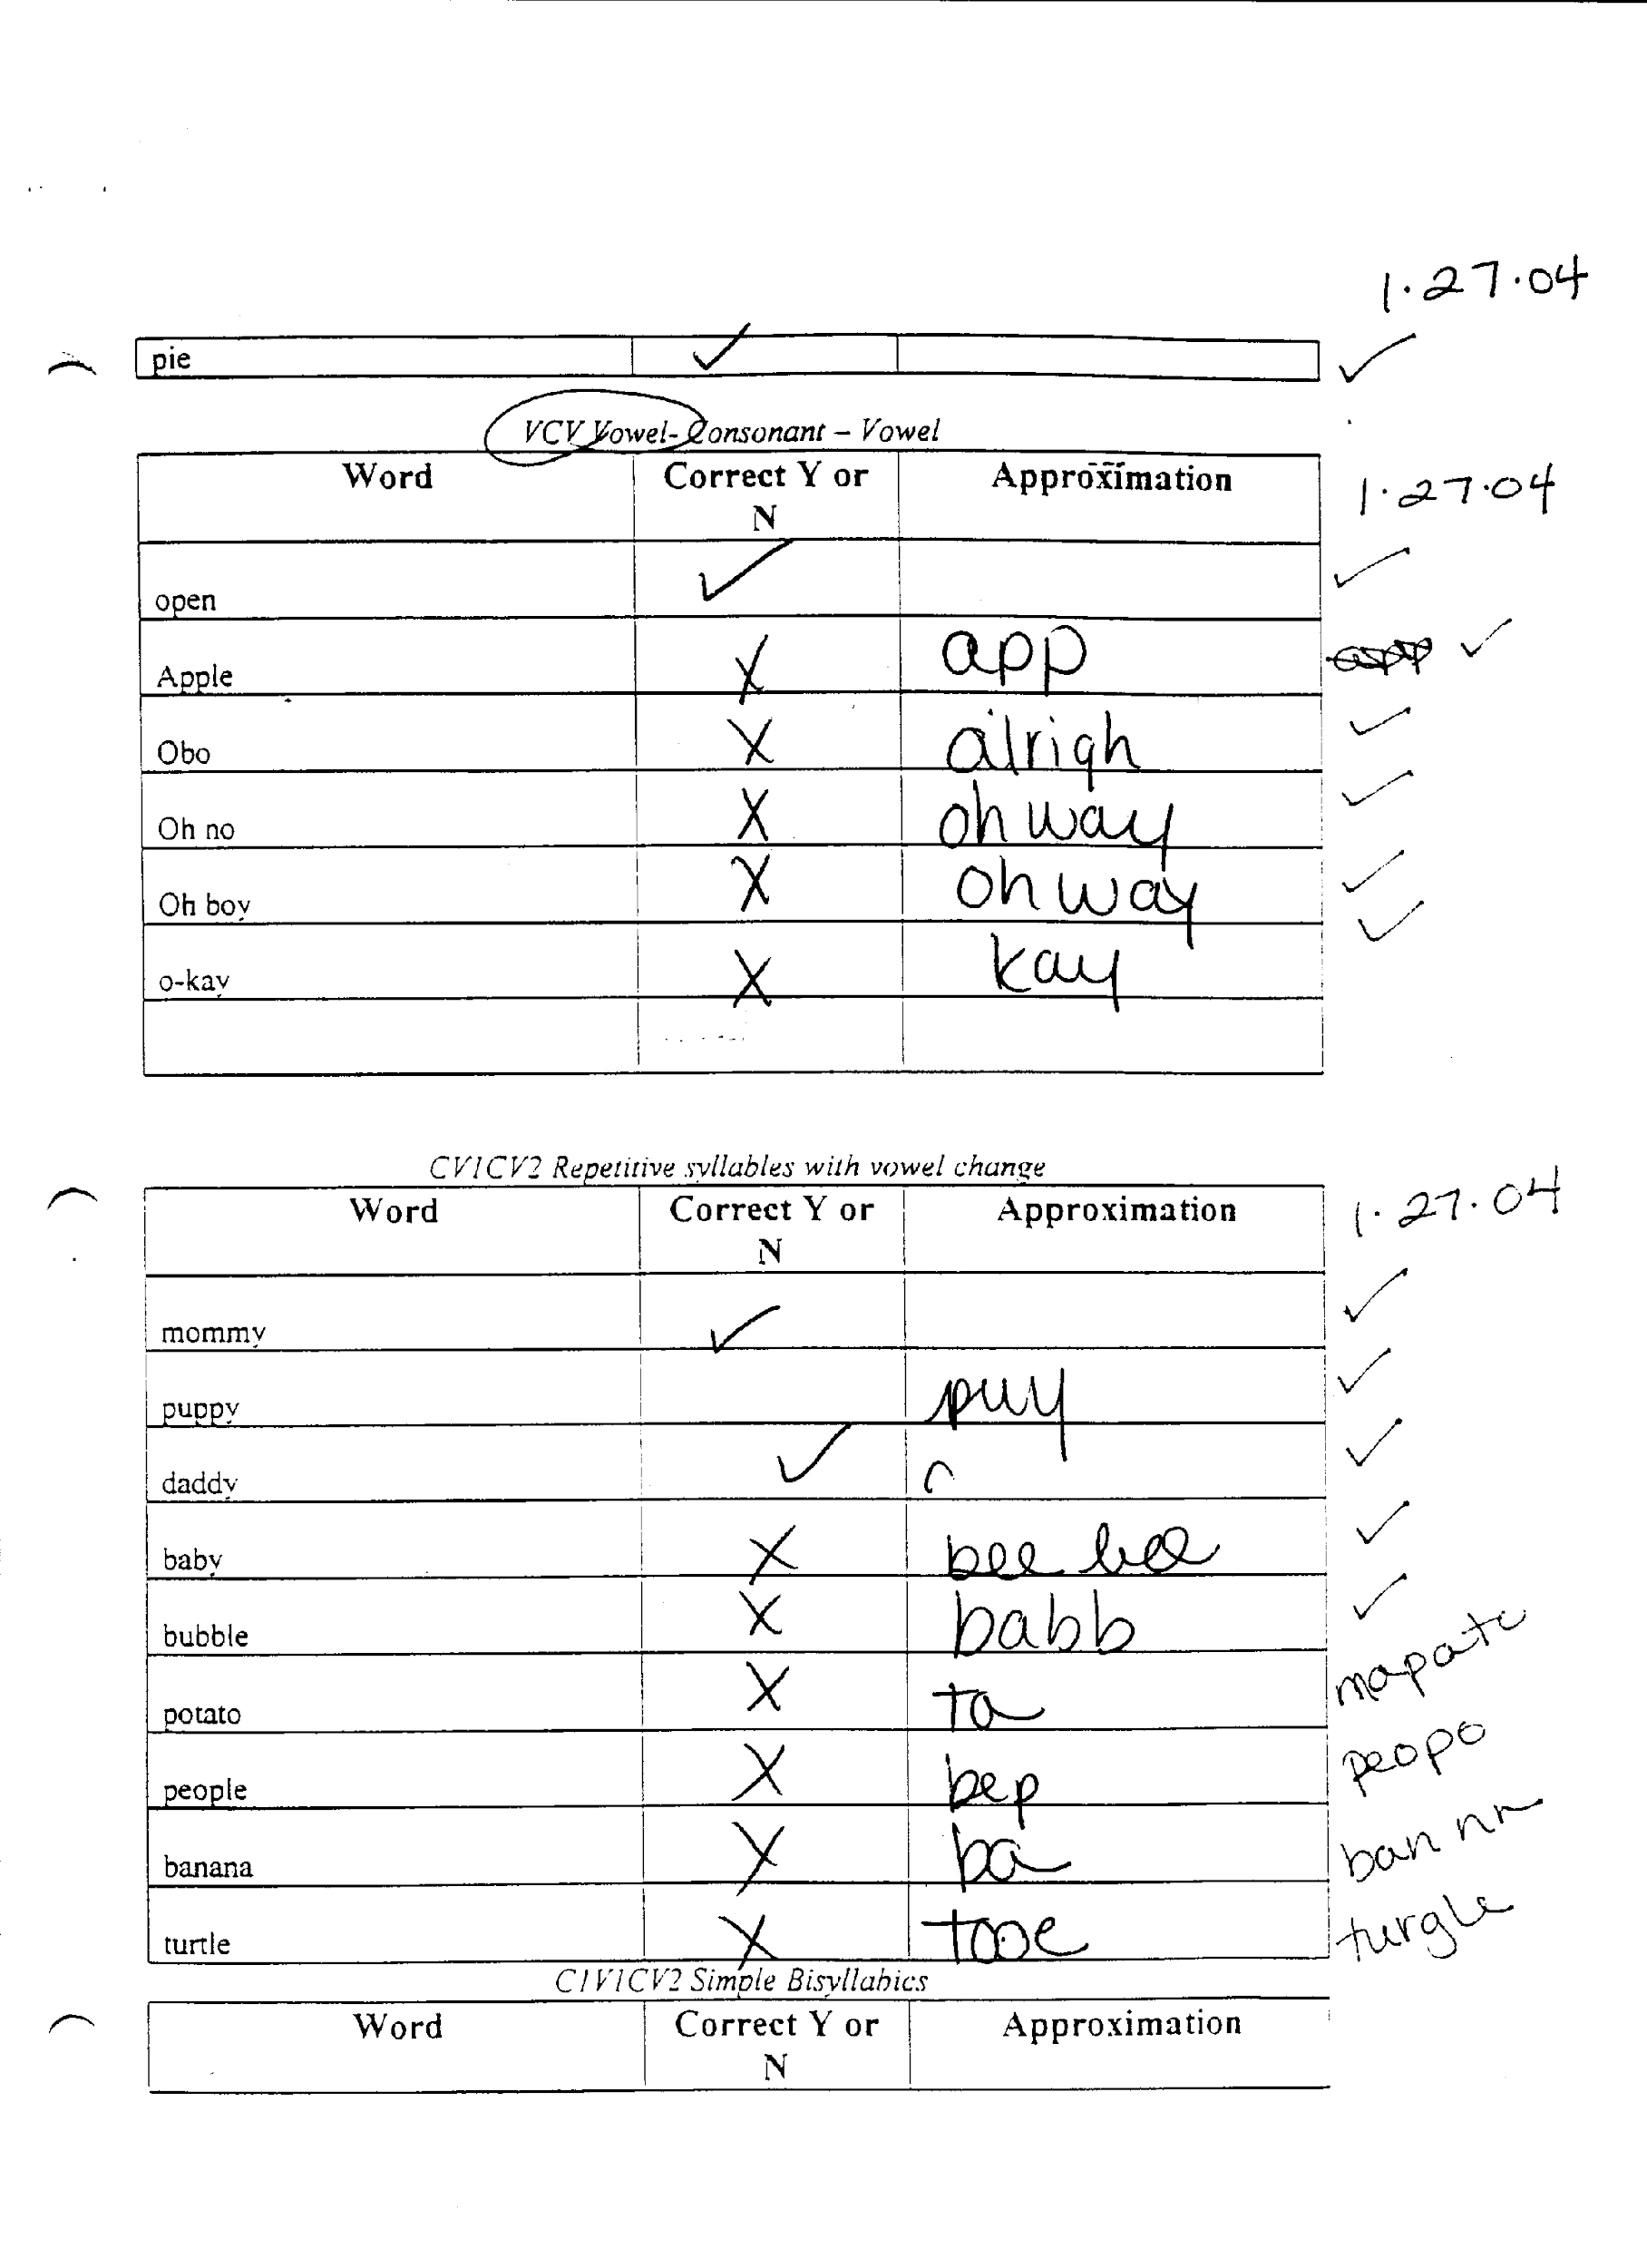 1.27.04
pie ✓ ✓
VCV Vowel- Consonant – Vowel
Word Correct Y or N Approximation 1.27.04
open ✓ ✓
Apple X app app ✓
Obo X alrigh ✓
Oh no X oh way ✓
Oh boy X oh way ✓
o-kay X kay ✓
CV1CV2 Repetitive syllables with vowel change
Word Correct Y or N Approximation 1.27.04
mommy ✓ ✓
puppy puy ✓
daddy ✓ ✓
baby X bee bee ✓
bubble X babb ✓
potato X ta mapato
people X bep peopo
banana X ba ban
turtle X tooe turgle
C1V1CV2 Simple Bisyllabics
Word Correct Y or N Approximation